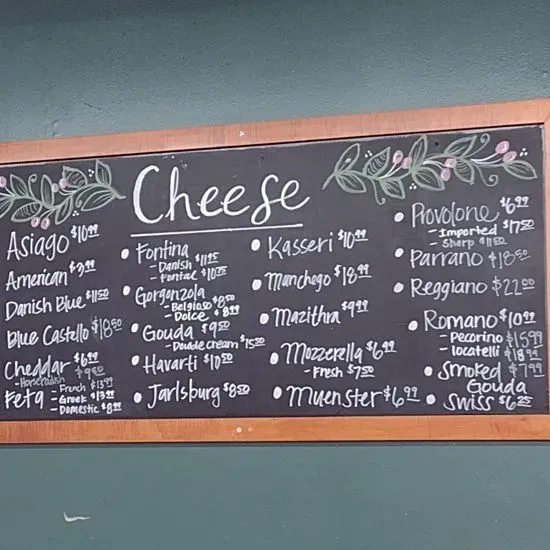 Cheese
Asiago $10.99
American $3.99
Danish Blue $11.50
Blue Castello $18.50
Cheddar $6.99
- Horseradish $9.50
Feta - French $13.99
- Greek $13.99
- Domestic $8.99
• Fontina
- Danish $11.95
- Fontal $10.25
• Gorgonzola
- Belgioso $8.50
- Dolce $8.99
• Gouda $9.50
- Double cream $15.50
• Havarti $10.50
• Jarlsburg $8.50
• Kasseri $10.99
• Manchego $18.99
• Mazithra $9.99
• Mozzerella $6.99
- Fresh $7.50
• Muenster $6.99
• Provolone $6.99
- Imported $17.50
- Sharp $11.50
• Parrano $18.50
• Reggiano $22.00
• Romano $10.99
- Pecorino $15.99
- locatelli $18.99
• Smoked $7.99
Gouda
• Swiss $6.25